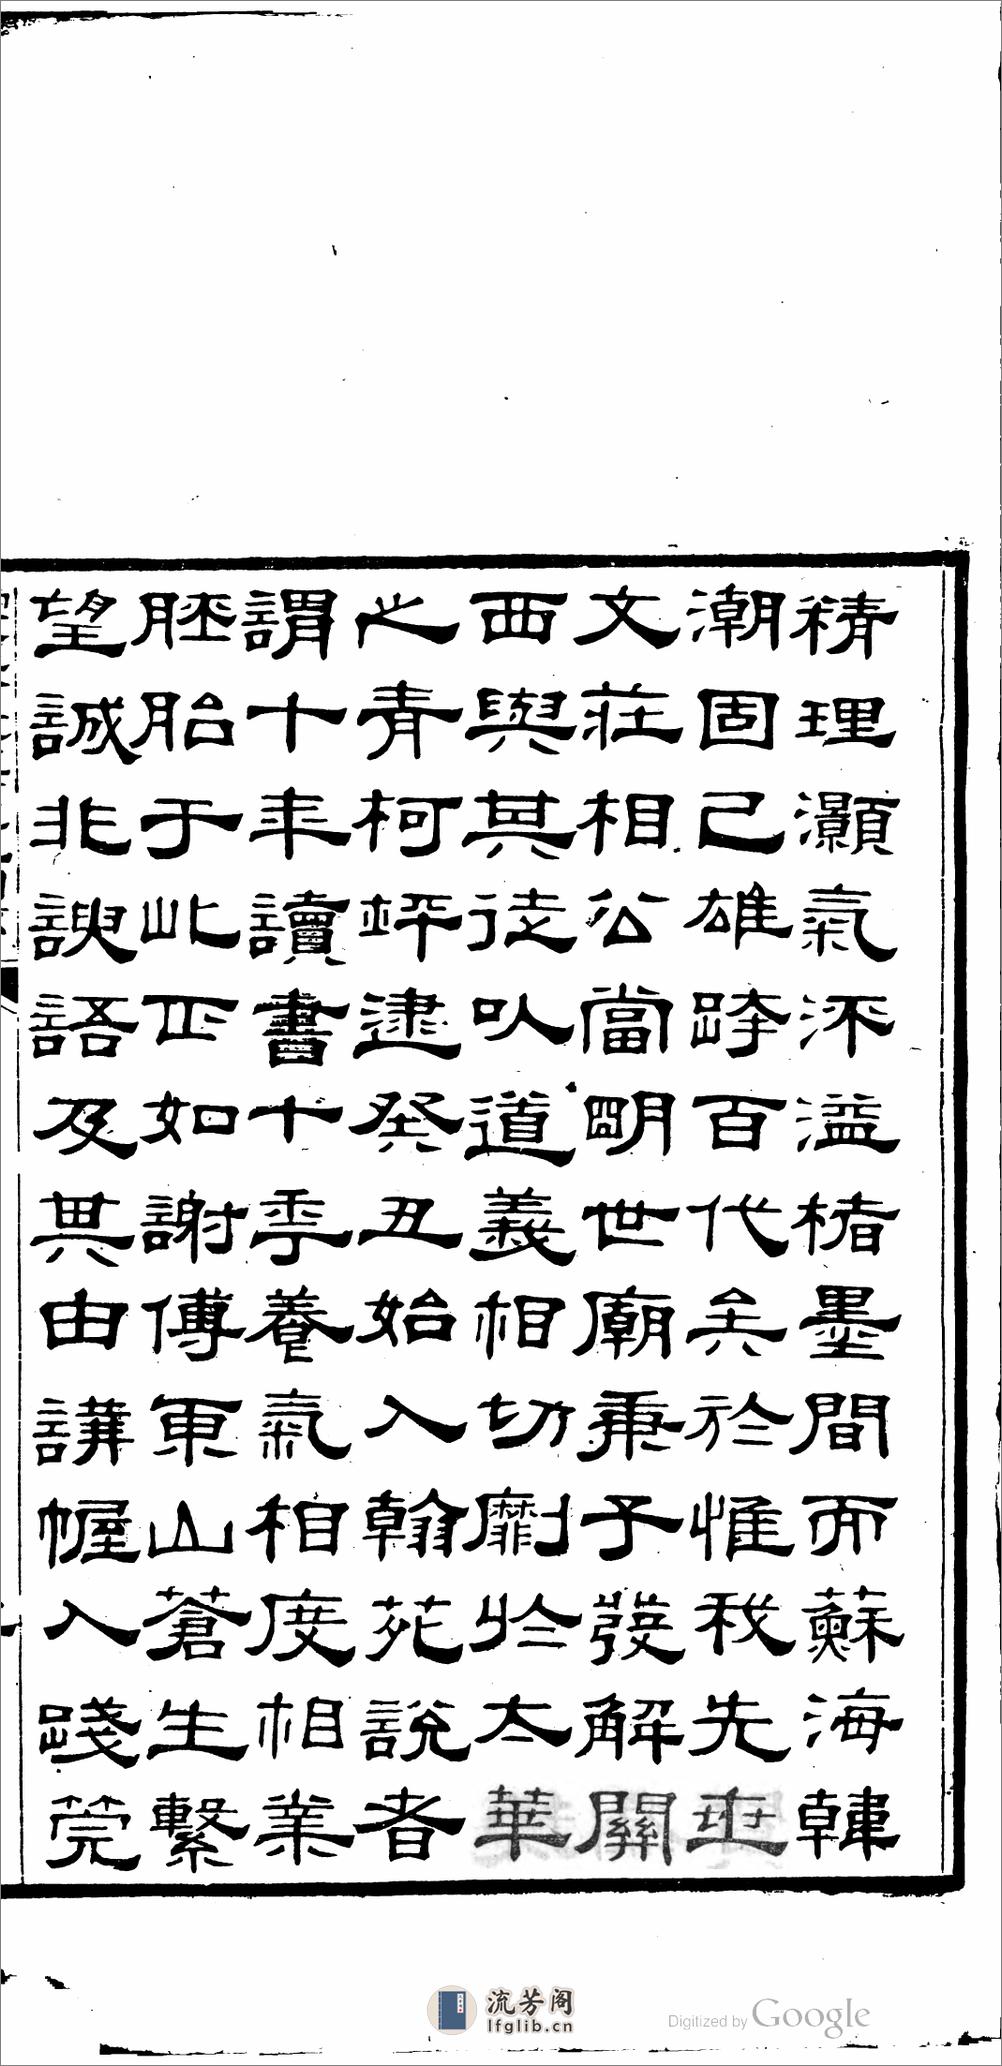 精理灝氣沠溢楮墨間而蘇海韓
潮固已雄跨百代矣於惟我先世
文莊相公當明世廟秉子發解關
西與其徒以道義相切劘於太華
之青柯坪逮癸丑始入翰苑說者
謂十年讀書十年養氣相度相業
胚胎于此正如謝傅東山蒼生繫
望誠非諛語及其由講幄入踐筦
流芳阁
lfglib.cn
Digitized by Google